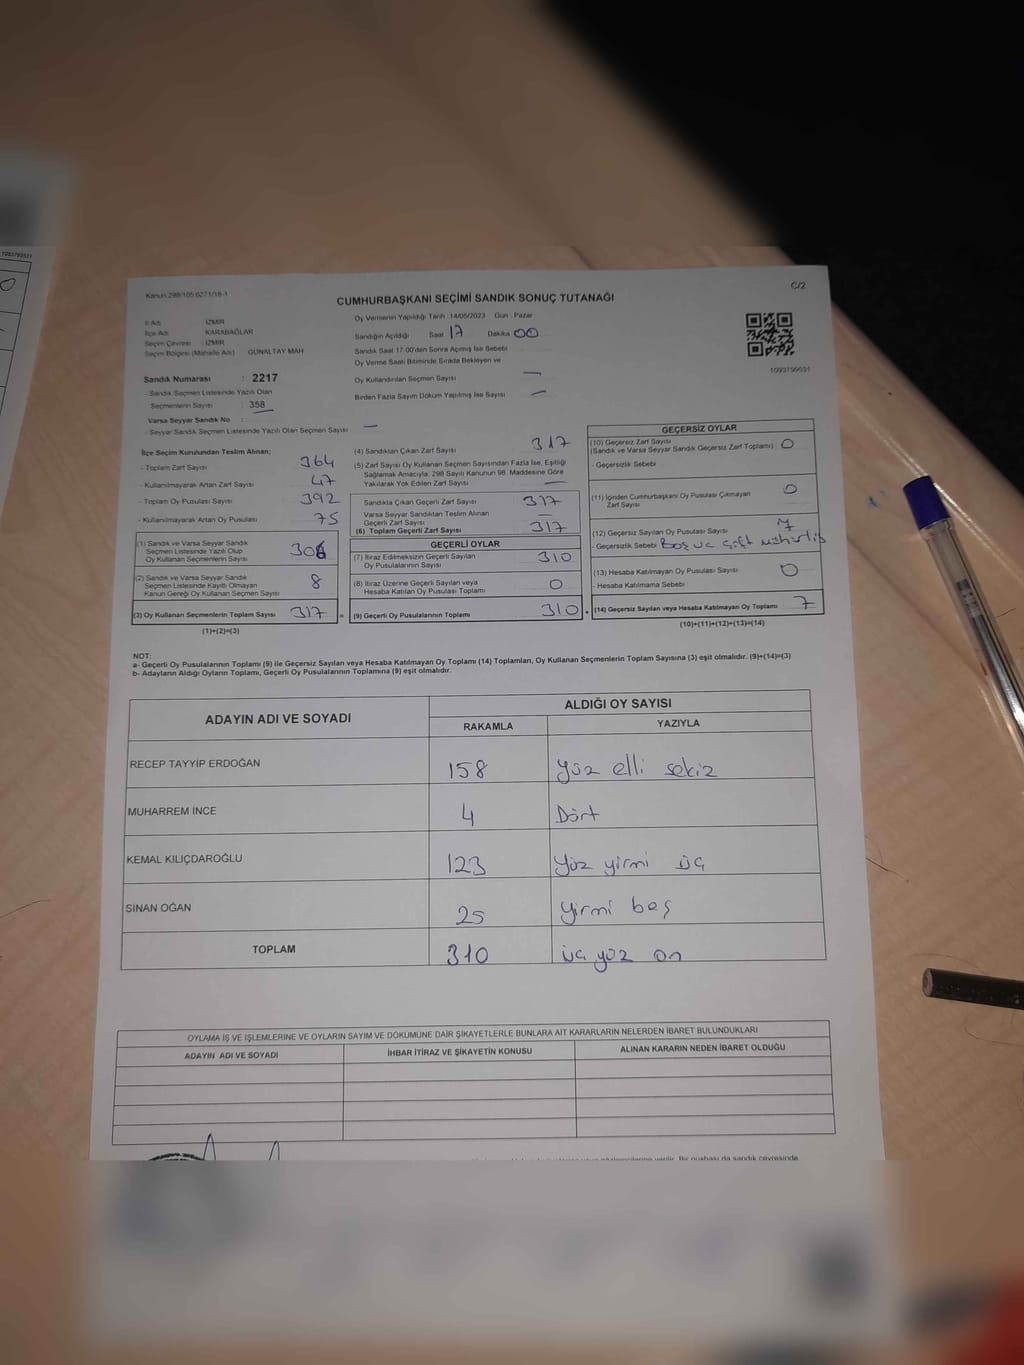 1093799531
Kanun 298/105 6271/18-1
C/2
CUMHURBAŞKANI SEÇİMİ SANDIK SONUÇ TUTANAĞI
İl Adı : İZMİR
İlçe Adı : KARABAĞLAR
Seçim Çevresi : İZMİR
Seçim Bölgesi (Mahalle Adı) : GÜNALTAY MAH
Oy Vermenin Yapıldığı Tarih : 14/05/2023 Gün : Pazar
Sandığın Açıldığı Saat 17 Dakika 00
Sandık Saat 17:00'den Sonra Açılmış İse Sebebi
Oy Verme Saati Bitiminde Sırada Bekleyen ve
Oy Kullandırılan Seçmen Sayısı —
Birden Fazla Sayım Döküm Yapılmış İse Sayısı —
1093799531
Sandık Numarası : 2217
- Sandık Seçmen Listesinde Yazılı Olan
Seçmenlerin Sayısı : 358
Varsa Seyyar Sandık No :
- Seyyar Sandık Seçmen Listesinde Yazılı Olan Seçmen Sayısı —
İlçe Seçim Kurulundan Teslim Alınan;
- Toplam Zarf Sayısı 364
- Kullanılmayarak Artan Zarf Sayısı 47
- Toplam Oy Pusulası Sayısı 392
- Kullanılmayarak Artan Oy Pusulası 75
(1) Sandık ve Varsa Seyyar Sandık
Seçmen Listesinde Yazılı Olup
Oy Kullanan Seçmenlerin Sayısı
(2) Sandık ve Varsa Seyyar Sandık
Seçmen Listesinde Kayıtlı Olmayan
Kanun Gereği Oy Kullanan Seçmen Sayısı 8
(3) Oy Kullanan Seçmenlerin Toplam Sayısı 317 =
(1)+(2)=(3)
(4) Sandıktan Çıkan Zarf Sayısı 317
(5) Zarf Sayısı Oy Kullanan Seçmen Sayısından Fazla İse, Eşitliği
Sağlamak Amacıyla, 298 Sayılı Kanunun 98. Maddesine Göre
Yakılarak Yok Edilen Zarf Sayısı —
Sandıkta Çıkan Geçerli Zarf Sayısı 317
Varsa Seyyar Sandıktan Teslim Alınan
Geçerli Zarf Sayısı —
(6) Toplam Geçerli Zarf Sayısı 317
GEÇERLİ OYLAR
(7) İtiraz Edilmeksizin Geçerli Sayılan
Oy Pusulalarının Sayısı 310
(8) İtiraz Üzerine Geçerli Sayılan veya
Hesaba Katılan Oy Pusulaları Toplamı 0
(9) Geçerli Oy Pusulalarının Toplamı 310 +
GEÇERSİZ OYLAR
(10) Geçersiz Zarf Sayısı
(Sandık ve Varsa Seyyar Sandık Geçersiz Zarf Toplamı) 0
- Geçersizlik Sebebi
(11) İçinden Cumhurbaşkanı Oy Pusulası Çıkmayan
Zarf Sayısı 0
(12) Geçersiz Sayılan Oy Pusulası Sayısı 7
- Geçersizlik Sebebi Boş ve Çift mühürlü
(13) Hesaba Katılmayan Oy Pusulası Sayısı 0
- Hesaba Katılmama Sebebi
(14) Geçersiz Sayılan veya Hesaba Katılmayan Oy Toplamı 7
(10)+(11)+(12)+(13)=(14)
NOT:
a- Geçerli Oy Pusulalarının Toplamı (9) ile Geçersiz Sayılan veya Hesaba Katılmayan Oy Toplamı (14) Toplamları, Oy Kullanan Seçmenlerin Toplam Sayısına (3) eşit olmalıdır. (9)+(14)=(3)
b- Adayların Aldığı Oyların Toplamı, Geçerli Oy Pusulalarının Toplamına (9) eşit olmalıdır.
ADAYIN ADI VE SOYADI ALDIĞI OY SAYISI
RAKAMLA YAZIYLA
RECEP TAYYİP ERDOĞAN 158 Yüz elli sekiz
MUHARREM İNCE 4 Dört
KEMAL KILIÇDAROĞLU 123 Yüz yirmi üç
SİNAN OĞAN 25 Yirmi beş
TOPLAM 310 üç yüz on
OYLAMA İŞ VE İŞLEMLERİNE VE OYLARIN SAYIM VE DÖKÜMÜNE DAİR ŞİKAYETLERLE BUNLARA AİT KARARLARIN NELERDEN İBARET BULUNDUKLARI
ADAYIN ADI VE SOYADI İHBAR İTİRAZ VE ŞİKAYETİN KONUSU ALINAN KARARIN NEDEN İBARET OLDUĞU